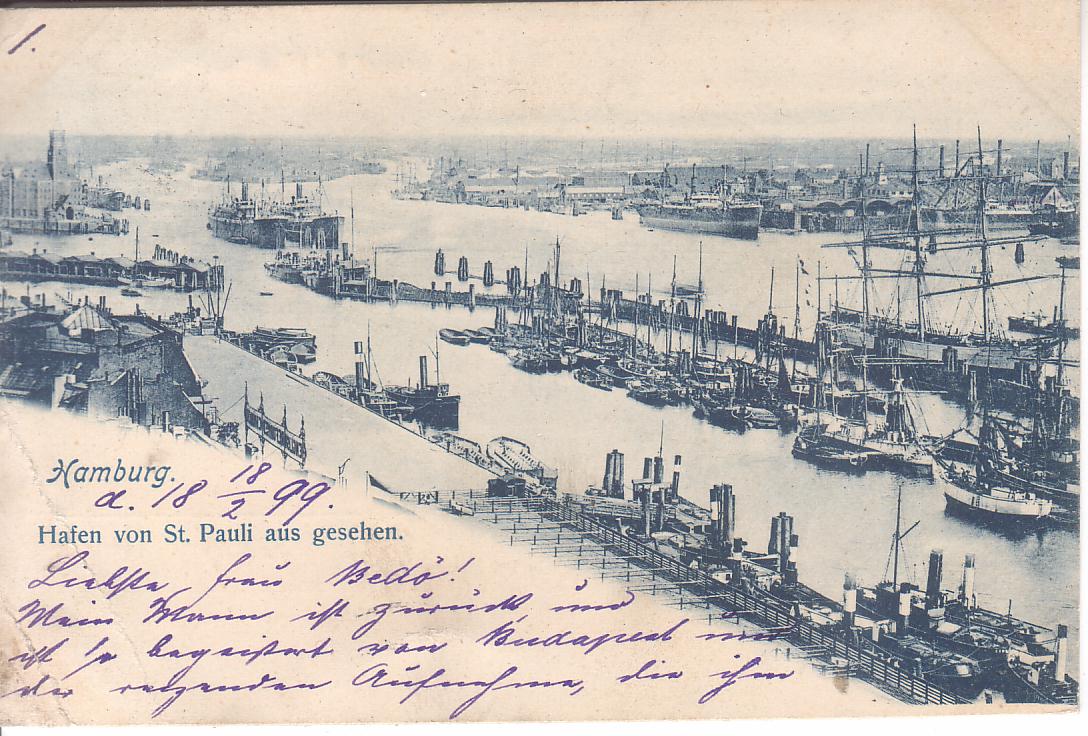 1.
Hamburg.
d. 18 18/2 99.
Hafen von St. Pauli aus gesehen.
Liebste Frau Bedö!
Mein Mann ist zurück und
ist so begeistert von Budapest und
der reizenden Aufnahme, die ihm